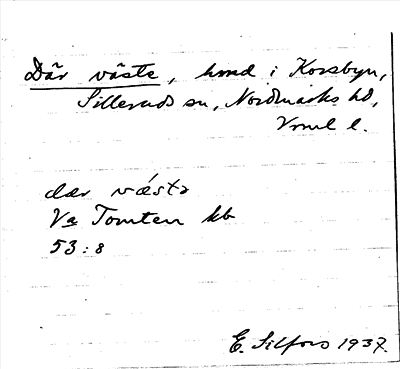 Där väste, hmd i Korsbyn,
Silleruds sn, Nordmarks hd,
Vrml l.
dær vǽstə
Va Tomten hb
53:8
E. Silfors 1937.